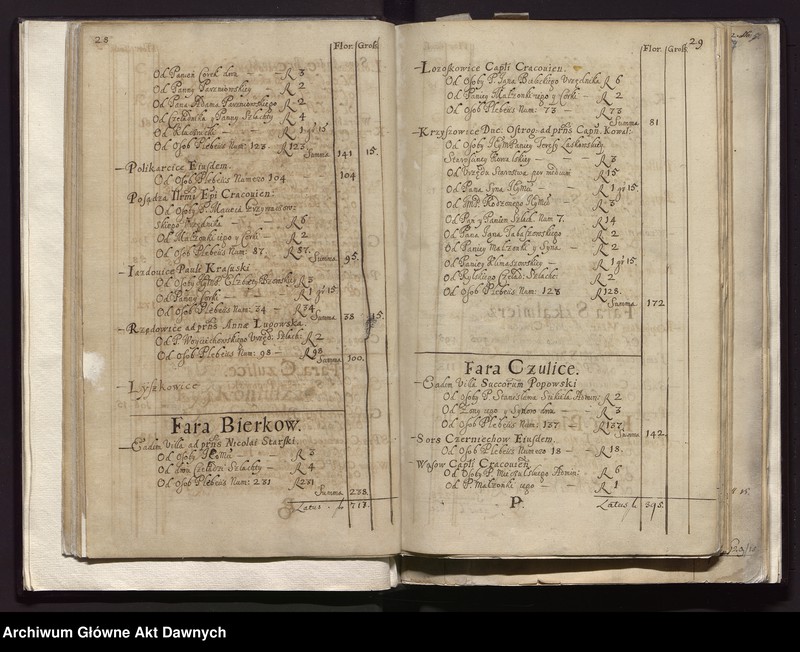 28
Flor: Groß:
Od Panien Corek dwu — R 3
Od Panny Parzniowskiey R 2
Od Pana Adama Parzniowskiego R 2
Od Czeladnika y Panny Szlachty R 4
Od Klucznicki — R 1 gr 15
Od Osob Plebeiis Num: 123 R 123
Summa 141 15.
— Polikarcice Eiusdem.
Od Osob Plebeiis Numero 104 104
Posądza Illrmi Epi Cracouien:
Od Osoby P. Macieia
skiego Vrzędnika — R 6
Od Małzonki iego y Corki R 2
Od Osob Plebeiis Num: 87. R 87.
Summa 95.
— Iazdowice Pauli Krasuski
Od Osoby Elzbiety R 3
Od Panny Corki — R 1 gr 15
Od Osob Plebeiis Num: 34 — R 34
Summa 38 15.
— Rzędowice ad prns Annæ Lugowska.
Od P. Woyciechowskiego Vrzęd: Szlach: R 2
Od Osob Plebeiis Num: 98 — R 98
Summa 100.
— Łyszkowice
Fara Bierkow.
— Eadem Villa ad prns Nicolai Starski.
Od Osoby — R 3
Od dwu Czeladzi Szlachty — R 4
Od Osob Plebeiis Num: 231 R 231
Summa 238.
Latus 717.
29
Flor: Groß:
— Łososkowice Capli Cracouien.
Od Osoby P. Jana Babeckiego Vrzędnika R 6
Od Paniey Małzonki iego y Corki R 2
Od Osob Plebeiis Num: 73 — R 73
Summa 81
— Krzyszowice Duc. Ostrog. ad prns Capn. Kowal:
Od Osoby Paniey Teresy Laskowskiey.
Starosciney Kowalskiey — R 3
Od Vrzędu Starostwa per medium R 15
Od Pana Syna — R 1 gr 15.
Od Rodzonego R 3
Od Pan y Panien Szlach. Num 7. R 14
Od Pana Jgna Tabaszowskiego R 2
Od Paniey Małzonki y Syna — R 2
Od Paniey Klimaszowskiey — R 1 gr 15.
Od Rylskiego Czelad: Szlachc: R 2
Od Osob Plebeiis Num: 128 R 128.
Summa 172
Fara Czulice.
— Eadem Villa Succorum Popowski
Od Osoby P. Stanisława Admin: R 2
Od Zony iego y Synow dwu — R 3
Od Osob Plebeiis Num: 137 — R 137.
Summa 142.
— Sors Czerniechow Eiusdem.
Od Osob Plebeiis Numero 18 — R 18.
— Węsow Capli Cracouien
Od Osoby P. Admin: R 6
Od P. Małzonki iego — R 1
P.
Latus 395.
Archiwum Główne Akt Dawnych